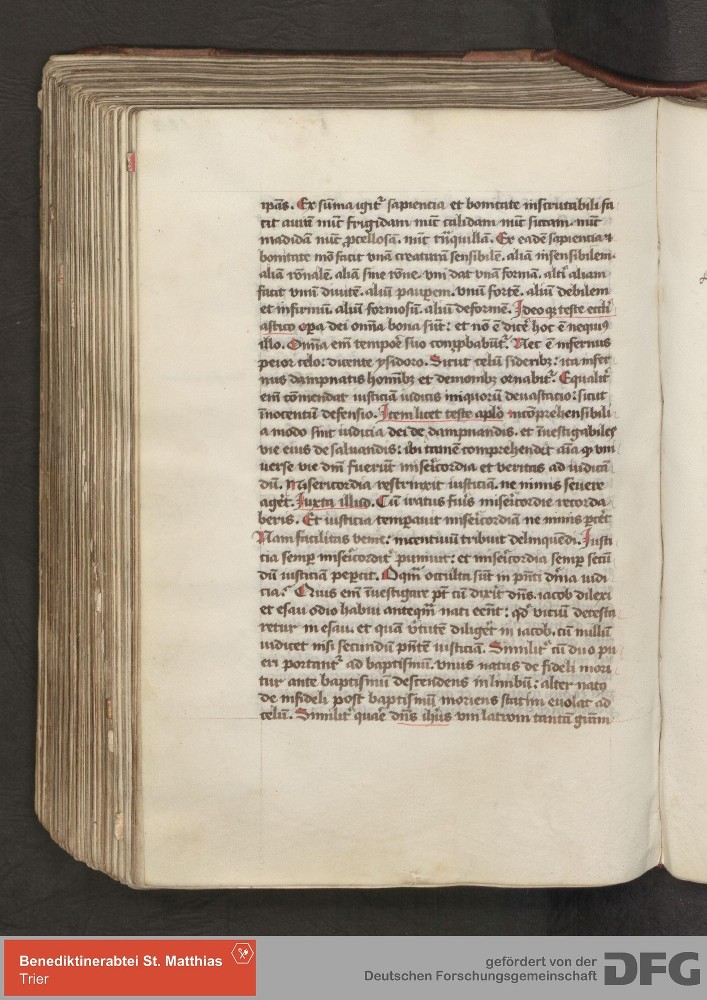 ipās. Ex sūma igit᷑ sapientia et bonitate inscrutabili fa
cit aurā nūc frigidam nūc calidam nūc siccam. nūc
madidā nūc ꝓcellosā. nūc trāquillā. Ex eadē sapiencia ⁊
bonitate mō facit vnā creaturā sensibilē. aliā insensibilem.
aliā rōnalē. aliā sine rōne. vni dat vnā formā. alt̓i aliam
facit vnū diuitē. aliū pauꝑem. vnū fortē. aliū debilem
et infirmū. aliū formosū. aliū deformē. Ideoqꝫ teste eccl̓i
astico oꝑa dei om̄ia bona sūt: et nō ē dicē hoc ē nequiꝰ
illo. Om̄ia em̄ tempor̓ suo cōꝓbabūt᷑. Nec ē infernus
peior celo: dicente ysidoro. Sicut celū sideribꝫ: ita infer
nus dampnatis hoīnibꝫ et demonibꝫ ornabit᷑. Equalit̓
em̄ cōmendat iusticiā iudicis iniquorū deuastacio: sicut
īnocentiū defensio. Item licet teste apl̓o incōprehensibili
a modo sint iudicia dei de dampnandis. et īuestigabiles
vie eius de saluandis: ibi tamē comprehendet᷑ cū vni
uerse vie dn̄i fuerūt misericordia et veritas ad iudicā
dū. Misericordia restrinxit iusticiā. ne nimis seuere
ager̓t. Iuxta illud. Cū iratus fu̓is misericordie recorda
beris. Et iusticia temꝑauit misericordiā ne nimis ꝑcer̓t
Nam facilitas venie: incentiuū tribuit delinquēdi. Iusti
cia semꝑ misericordit̓ puniuit: et misericordia semꝑ secū
dū iusticiā peꝑcit. Oq̄m occulta sūt in pn̄ti dn̄ia iudi
cia. Quis em̄ īuestigare pōt cū dixit dn̄s. iacob dilexi
et esau odio habui anteq̄m nati eēnt: qd̓ vitiū detesta
retur in esau. et quā v̓tutē diliger̓t in iacob. cū nullū
iudicet nisi secundū pn̄tē iusticiā. Similit̓ cū duo pu
eri portant᷑ ad baptismū. vnus natus de fideli mori
tur ante baptismū descendens in limbū: alter natꝰ
de infideli post baptismū moriens statim euolat ad
celū. Similit̓ quare dn̄s ih̄us vni latroni tantū grām
Benediktinerabtei St. Matthias
Trier
gefördert von der
Deutschen Forschungsgemeinschaft
DFG